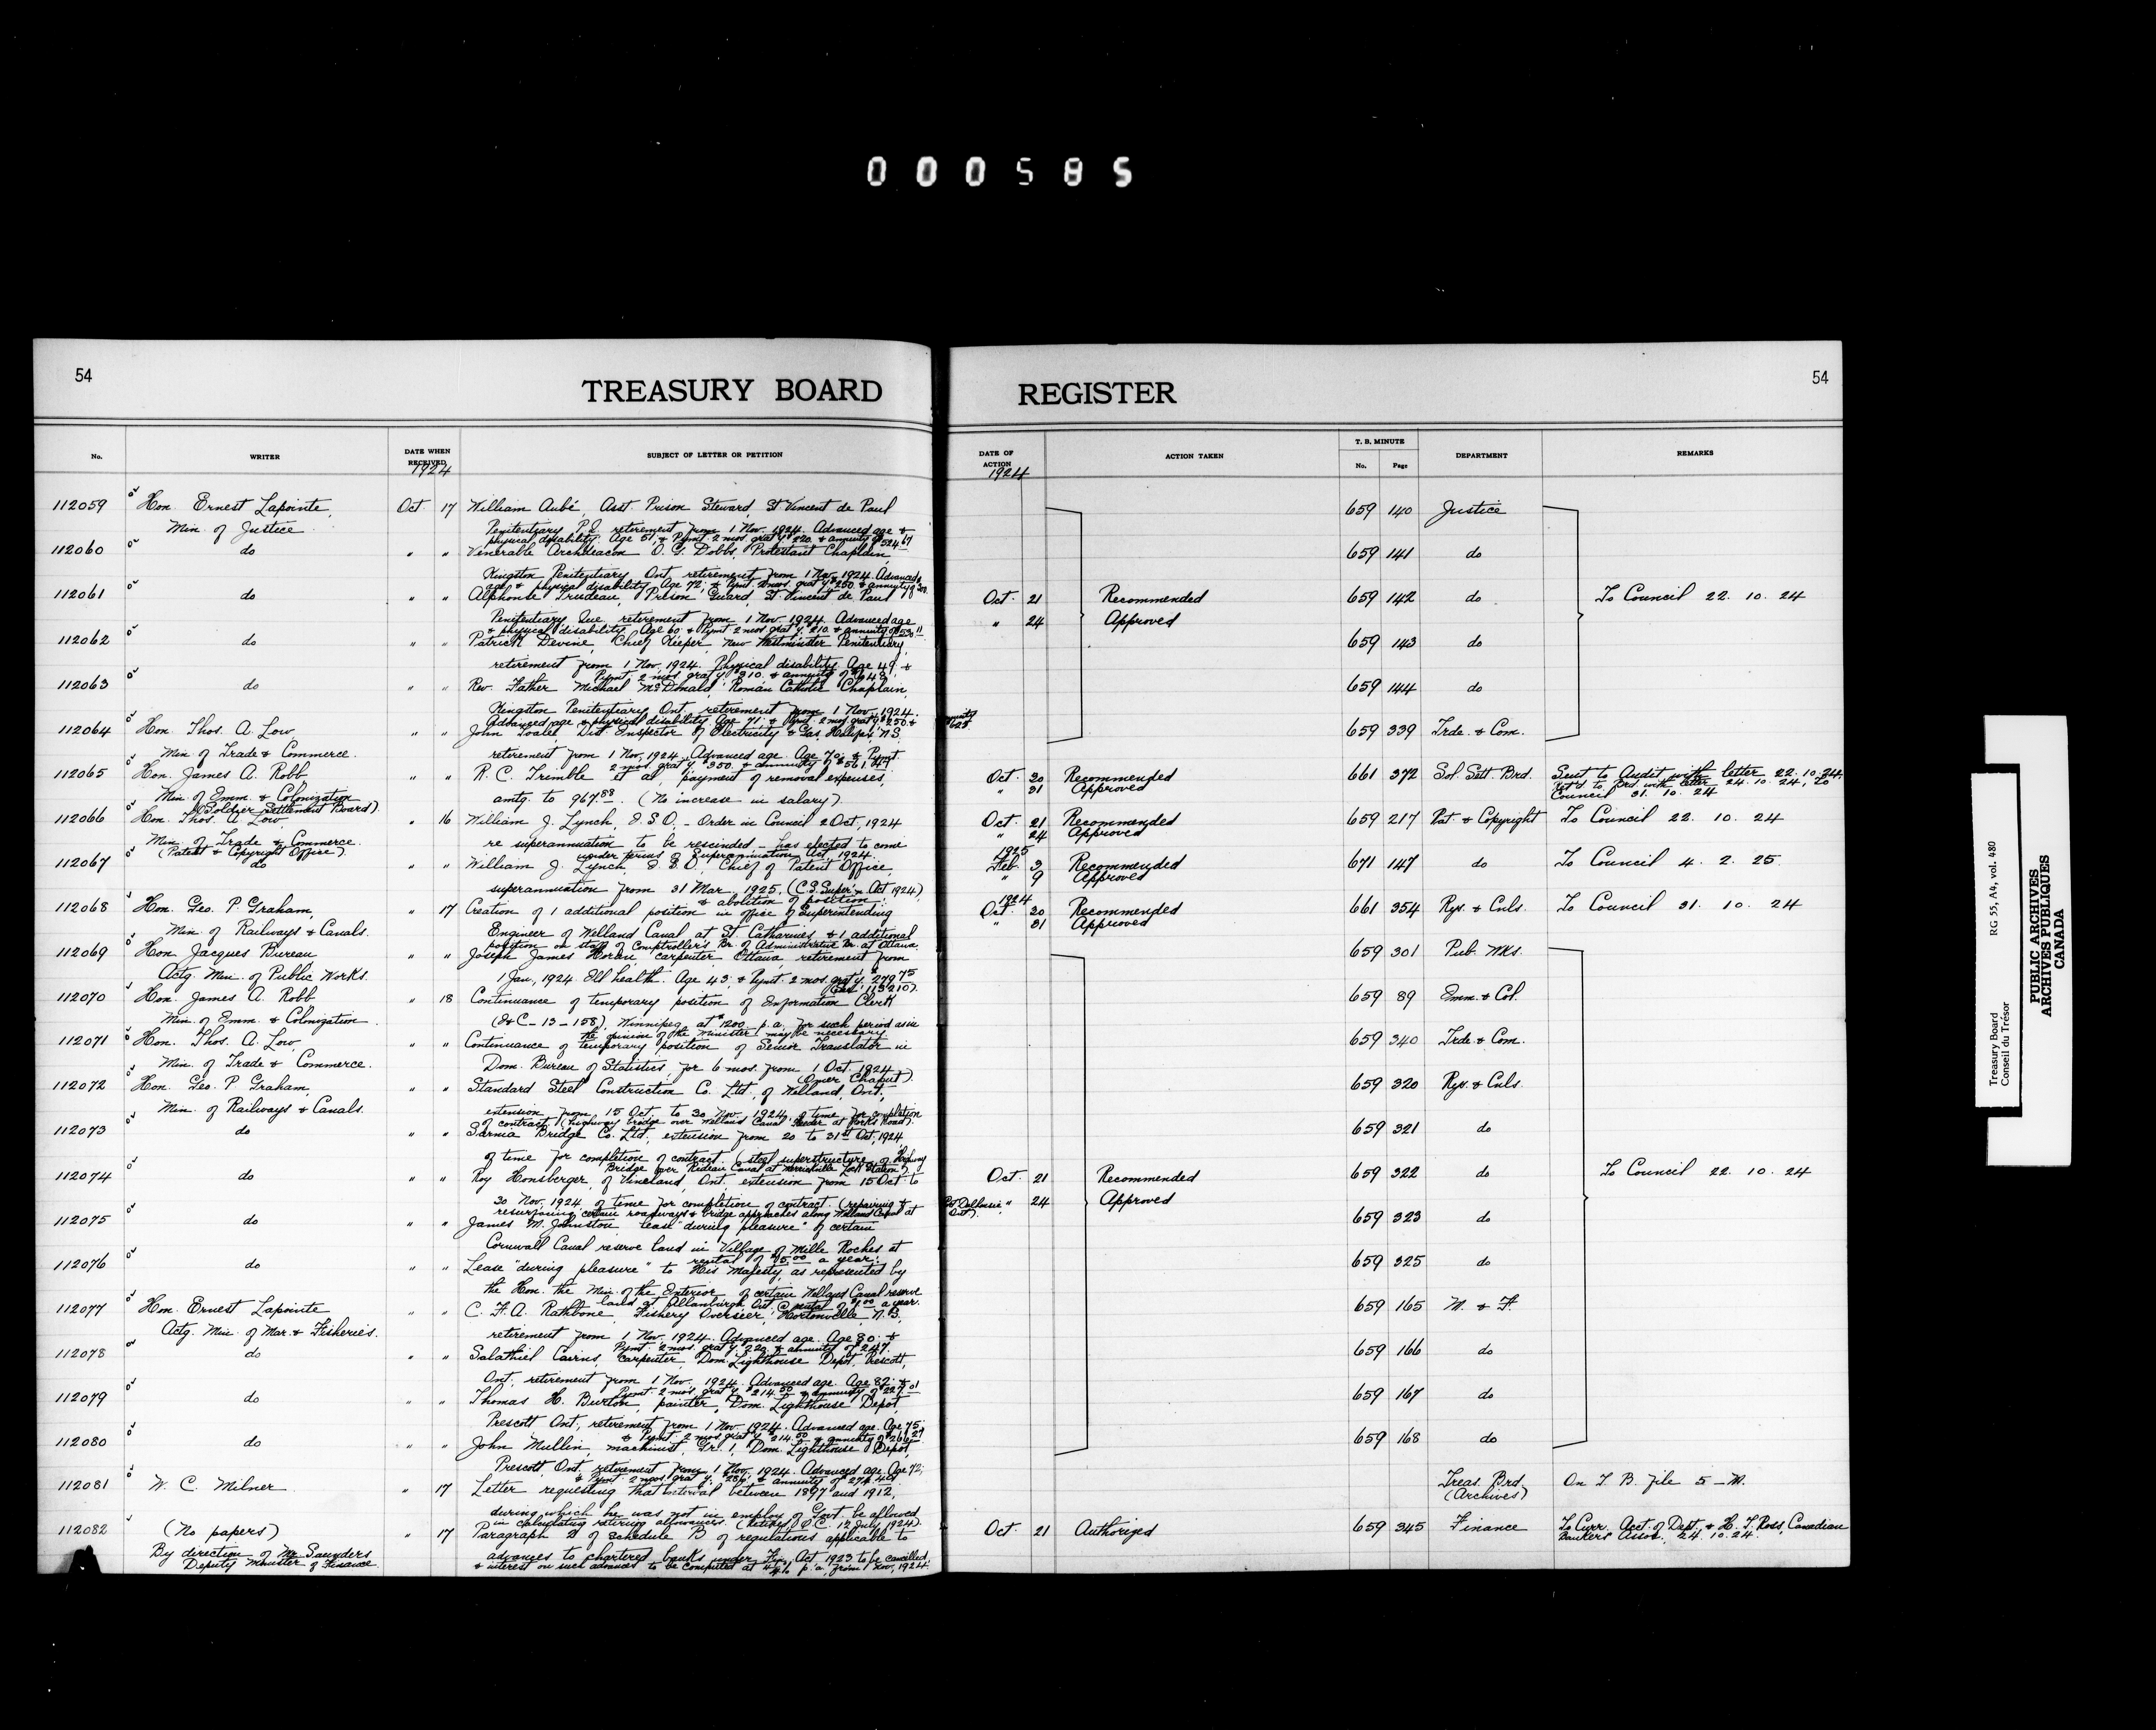 000585
54
TREASURY BOARD
No.
WRITER
DATE WHEN RECEIVED
SUBJECT OF LETTER OR PETITION
1924
112059 Hon. Ernest Lapointe, Oct 17 William Aubé, Asst. Prison Steward, St Vincent de Paul
Min. of Justice Penitentiary P.Q. retirement from 1 Nov. 1924. Advanced age &
physical disability. Age 51, & Pymt. 2 mos. grat'y $220. & annuity of $524.67
112060 do " " Venerable Archdeacon O.G. Dobbs, Protestant Chaplain,
Kingston Penitentiary Ont. retirement from 1 Nov. 1924. Advanced
age & physical disability. Age 72; & Pymt. 2 mos. grat'y $250. & annuity of
112061 do " " Alphonse Trudeau, Prison Guard, St Vincent de Paul
Penitentiary Que retirement from 1 Nov. 1924. Advanced age
& physical disability. Age 60 & Pymt 2 mos grat'y $210. & annuity of $530.11
112062 do " " Patrick Devine, Chief Keeper, New Westminster Penitentiary,
retirement from 1 Nov. 1924. Physical disability. Age 49 &
Pymt. 2 mos. grat'y $310. & annuity of $948.
112063 do " " Rev. Father Michael McDonald, Roman Catholic Chaplain,
Kingston Penitentiary Ont. retirement from 1 Nov. 1924.
Advanced age & physical disability. Age 71; & Pymt. 2 mos grat'y $250. &
112064 Hon. Thos. A. Low " " John Toale, Dist. Inspector of Electricity & Gas, Halifax, N.S.
Min. of Trade & Commerce. retirement from 1 Nov. 1924. Advanced age. Age 70; & Pymt.
2 mos. grat'y $350. & annuity of $561.47
112065 Hon. James A. Robb " " R. C. Trimble et al, payment of removal expenses,
Min. of Imm. & Colonization amtg. to 967.88. (No increase in salary).
(Soldier Settlement Board).
112066 Hon. Thos. A. Low " 16 William J. Lynch, I.S.O. - Order in Council 2 Oct, 1924
Min. of Trade & Commerce. re superannuation to be rescinded - has elected to come
(Patent & Copyright Office). under terms of Superannuation Act, 1924.
112067 do " " William J. Lynch, I.S.O., Chief of Patent Office,
superannuation from 31 Mar. 1925. (C.S. Super'n Act 1924),
& abolition of position.
112068 Hon. Geo. P. Graham, " 17 Creation of 1 additional position in office of Superintending
Min. of Railways & Canals. Engineer of Welland Canal at St. Catharines & 1 additional
position on staff of Comptroller's Br. of Administrative Br. at Ottawa.
112069 Hon. Jacques Bureau " " Joseph James carpenter Ottawa retirement from
Actg. Min. of Public Works. 1 Jan, 1924. Ill health. Age 43; & Pymt. 2 mos. grat'y $279.75
112070 Hon. James A. Robb " 18 Continuance of temporary position of Information Clerk
Min. of Imm. & Colonization. (I&C-13-158), Winnipeg, at $1200. p.a. for such period as in
the opinion of the Minister may be necessary.
112071 Hon. Thos. A. Low, " " Continuance of temporary position of Senior Translator in
Min. of Trade & Commerce. Dom. Bureau of Statistics, for 6 mos. from 1 Oct. 1924
(Omer Chaput).
112072 Hon. Geo. P. Graham, " " Standard Steel Construction Co. Ltd. of Welland, Ont.,
Min. of Railways & Canals. extension from 15 Oct. to 30 Nov. 1924, of time for completion
of contract (highway bridge over Welland Canal Feeder at Forks Road).
112073 do " " Sarnia Bridge Co. Ltd. extension from 20 to 31st Oct, 1924
of time for completion of contract. (steel superstructure of Highway
Bridge over Rideau Canal at Merrickville Lock Station)
112074 do " " Roy Honsberger, of Vineland, Ont. extension from 15 Oct. to
30 Nov. 1924 of time for completion of contract. (repairing &
resurfacing certain roadways & bridge approaches along Welland Canal at
112075 do " " James M. Johnston lease "during pleasure" of certain
Cornwall Canal reserve land in Village of Mille Roches at
rental of $5.00 a year.
112076 do " " Lease "during pleasure" to His Majesty, as represented by
the Hon. the Min. of the Interior of certain Welland Canal reserve
land at Allanburgh, Ont. @ rental of $1.00 a year.
112077 Hon. Ernest Lapointe " " C. F. A. Rathbone, Fishery Overseer, Hortonville, N.B.,
Actg. Min. of Mar. & Fisheries. retirement from 1 Nov, 1924. Advanced age. Age 80; &
Pymt. 2 mos. grat'y $220. & annuity of $247.
112078 do " " Salathiel Cairns, Carpenter, Dom. Lighthouse Depot, Prescott,
Ont., retirement from 1 Nov. 1924. Advanced age. Age 82; &
Pymt. 2 mos. grat'y $214.50 & annuity of $227.01
112079 do " " Thomas H. Burton, painter, Dom. Lighthouse Depot,
Prescott Ont., retirement from 1 Nov. 1924. Advanced age. Age 75,
& Pymt. 2 mos grat'y $214.50 & annuity of $266.27
112080 do " " John Mullin, machinist, Gr. 1, Dom. Lighthouse Depot,
Prescott, Ont. retirement from 1 Nov. 1924. Advanced age. Age 72;
& Pymt. 2 mos. grat'y & annuity of
112081 W. C. Milner " 17 Letter requesting that interval between 1897 and 1912,
during which he was not in employ of Govt. be allowed
in calculating retiring allowances. (Retired O.C. 12 July 1924).
112082 (No papers) " 17 Paragraph 2 of Schedule B of regulations applicable to
By direction of Mr Saunders advances to chartered banks under Fin. Act 1923 to be cancelled
Deputy Minister of Finance. & interest on such advances to be computed at p.a. from 1 Nov, 1924.
REGISTER
54
DATE OF ACTION
ACTION TAKEN
T. B. MINUTE
No.
Page
DEPARTMENT
REMARKS
1924
659 140 Justice
659 141 do
Oct. 21 Recommended 659 142 do To Council 22. 10. 24
" 24 Approved
659 143 do
659 144 do
annuity
625
659 339 Trde. & Com.
Oct. 30 Recommended 661 372 Sol. Sett. Brd. Sent to Audit with letter 22.10.24,
" 31 Approved Ret'd to Brd. with letter 24.10.24, To
Council 31. 10. 24
Oct. 21 Recommended 659 217 Pat. & Copyright To Council 22. 10. 24
" 24 Approved
1925
Feb. 3 Recommended 671 147 do To Council 4. 2. 25.
" 9 Approved
1924
Oct. 30 Recommended 661 354 Rys. & Cnls. To Council 31. 10. 24
" 31 Approved
659 301 Pub. Wks.
659 89 Imm. & Col.
659 340 Trde. & Com.
659 320 Rys. & Cnls.
659 321 do
Oct. 21 Recommended 659 322 do To Council 22. 10. 24
Pt. Dalhousie, " 24 Approved
Ont).
659 323 do
659 325 do
659 165 M. & F.
659 166 do
659 167 do
659 168 do
Treas. Brd. On T. B. file 5-M.
(Archives)
Oct. 21 Authorized 659 345 Finance To Curr. Acct. of Dept. & H. T. Ross, Canadian
Bankers Assoc. 24. 10. 24.
Treasury Board RG 55, A4, vol. 480
Conseil du Trésor
PUBLIC ARCHIVES
ARCHIVES PUBLIQUES
CANADA